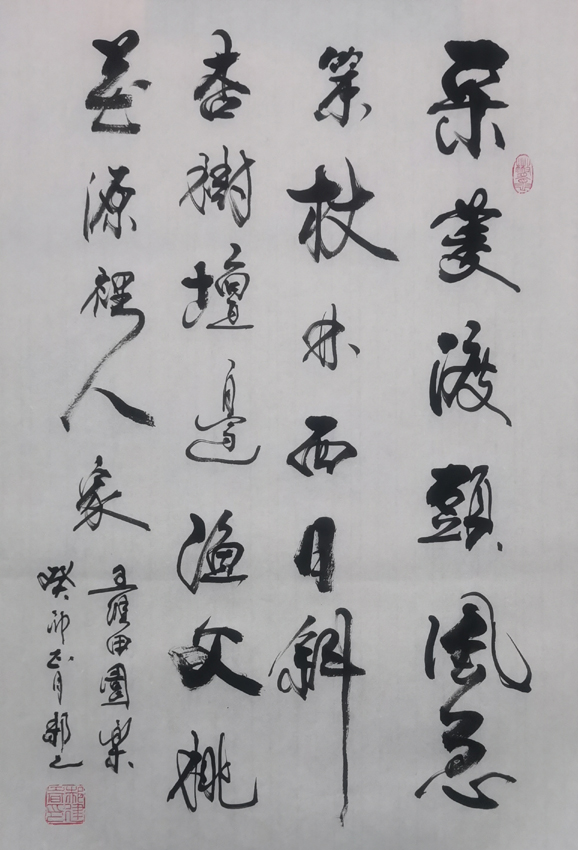 采菱渡頭風急
策杖林西日斜
杏樹壇邊漁父桃
花源裡人家
王維田園樂
癸卯正月